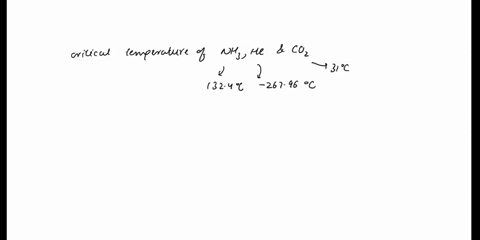 critical temperature of NH3, He & CO2
31°C
132.4°C -267.96 °C